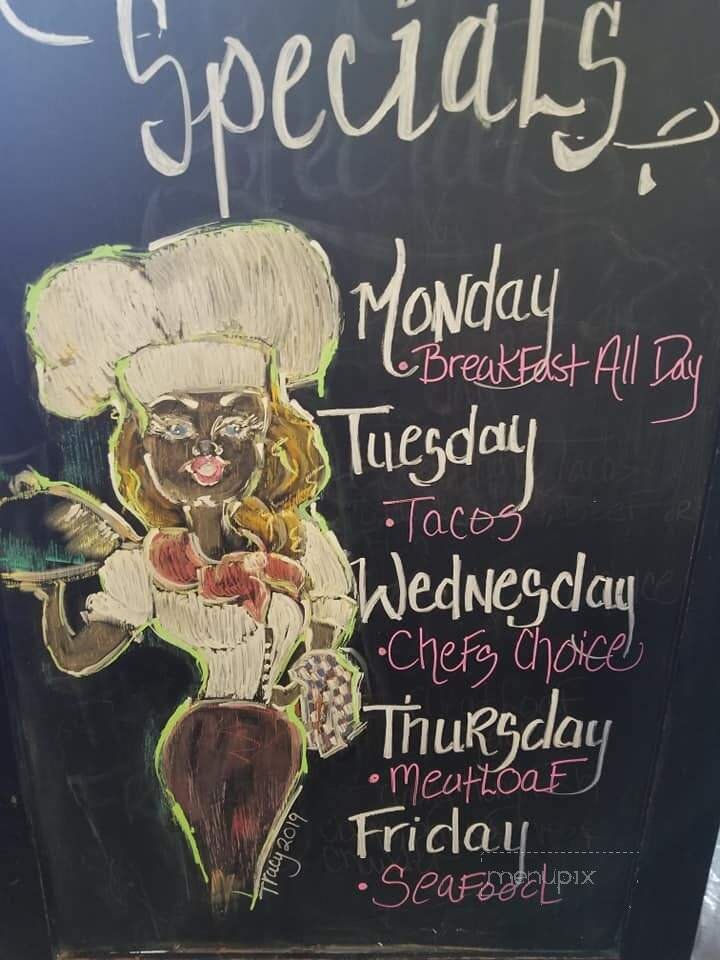 Specials
Monday
• Breakfast All Day
Tuesday
• Tacos
Wednesday
• Chefs Choice
Thursday
• Meatloaf
Friday
• Seafood
Tracy 2019
menupix